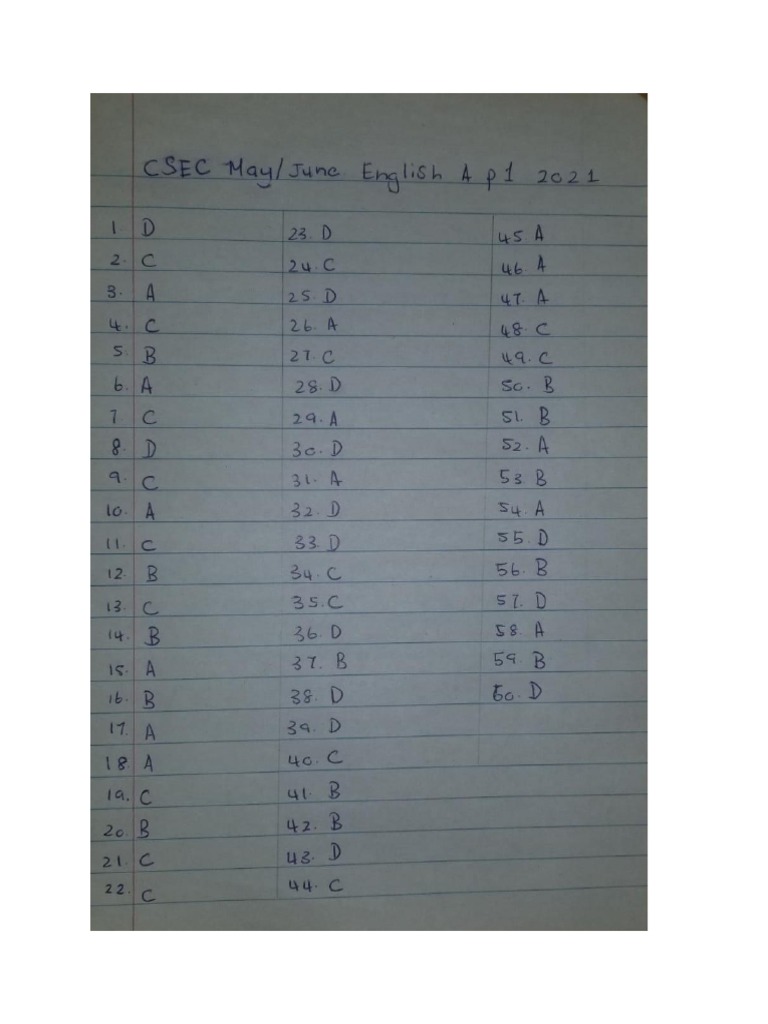 CSEC May/June English A p1 2021
1 D
2. C
3. A
4. C
5. B
6. A
7 C
8. D
9. C
10. A
11. C
12. B
13. C
14. B
15. A
16. B
17. A
18 A
19. C
20. B
21. C
22. C
23. D
24. C
25. D
26. A
27. C
28. D
29. A
30. D
31. A
32. D
33. D
34. C
35. C
36. D
37. B
38. D
39. D
40. C
41. B
42. B
43. D
44. C
45. A
46. A
47. A
48. C
49. C
50. B
51. B
52. A
53 B
54. A
55. D
56. B
57. D
58. A
59. B
60. D